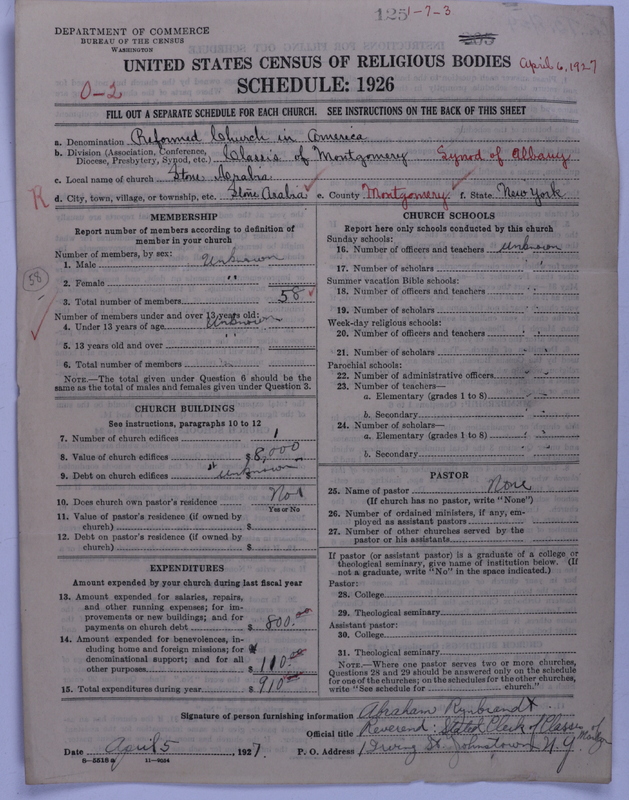 125 1-7-3
DEPARTMENT OF COMMERCE
BUREAU OF THE CENSUS
WASHINGTON
UNITED STATES CENSUS OF RELIGIOUS BODIES April 6, 1927
O-2
SCHEDULE: 1926
FILL OUT A SEPARATE SCHEDULE FOR EACH CHURCH. SEE INSTRUCTIONS ON THE BACK OF THIS SHEET
a. Denomination Reformed Church in America
b. Division (Association, Conference, Diocese, Presbytery, Synod, etc.) Classis of Montgomery Synod of Albany
c. Local name of church Stone Arabia
R
d. City, town, village, or township, etc. Stone Arabia e. County Montgomery f. State New York
MEMBERSHIP
Report number of members according to definition of
member in your church
Number of members, by sex:
1. Male Unknown
58
2. Female " "
3. Total number of members 58
Number of members under and over 13 years old:
4. Under 13 years of age Unknown
5. 13 years old and over
6. Total number of members
NOTE.—The total given under Question 6 should be the
same as the total of males and females given under Question 3.
CHURCH BUILDINGS
See instructions, paragraphs 10 to 12
7. Number of church edifices 1
8. Value of church edifices $8,000
9. Debt on church edifices $ Unknown
10. Does church own pastor's residence No
Yes or No
11. Value of pastor's residence (if owned by
church) $
12. Debt on pastor's residence (if owned by
church) $
EXPENDITURES
Amount expended by your church during last fiscal year
13. Amount expended for salaries, repairs,
and other running expenses; for im-
provements or new buildings; and for
payments on church debt $ 800.00
14. Amount expended for benevolences, in-
cluding home and foreign missions; for
denominational support; and for all
other purposes $ 110.00
15. Total expenditures during year $ 910.00
CHURCH SCHOOLS
Report here only schools conducted by this church
Sunday schools:
16. Number of officers and teachers Unknown
17. Number of scholars " "
Summer vacation Bible schools:
18. Number of officers and teachers
19. Number of scholars
Week-day religious schools:
20. Number of officers and teachers
21. Number of scholars
Parochial schools:
22. Number of administrative officers
23. Number of teachers—
a. Elementary (grades 1 to 8)
b. Secondary
24. Number of scholars—
a. Elementary (grades 1 to 8)
b. Secondary
PASTOR
25. Name of pastor None
(If church has no pastor, write "None")
26. Number of ordained ministers, if any, em-
ployed as assistant pastors
27. Number of other churches served by the
pastor or his assistants
If pastor (or assistant pastor) is a graduate of a college or
theological seminary, give name of institution below. (If
not a graduate, write "No" in the space indicated.)
Pastor:
28. College
29. Theological seminary
Assistant pastor:
30. College
31. Theological seminary
NOTE.—Where one pastor serves two or more churches,
Questions 28 and 29 should be answered only on the schedule
for one of the churches; on the schedules for the other churches,
write "See schedule for church."
Signature of person furnishing information Abraham Rynbrandt
Official title Reverend: Stated Clerk of Classis of
Date April 5 1927. P. O. Address 1 Irving St. Johnstown N.Y.
8-5518a 11-9034